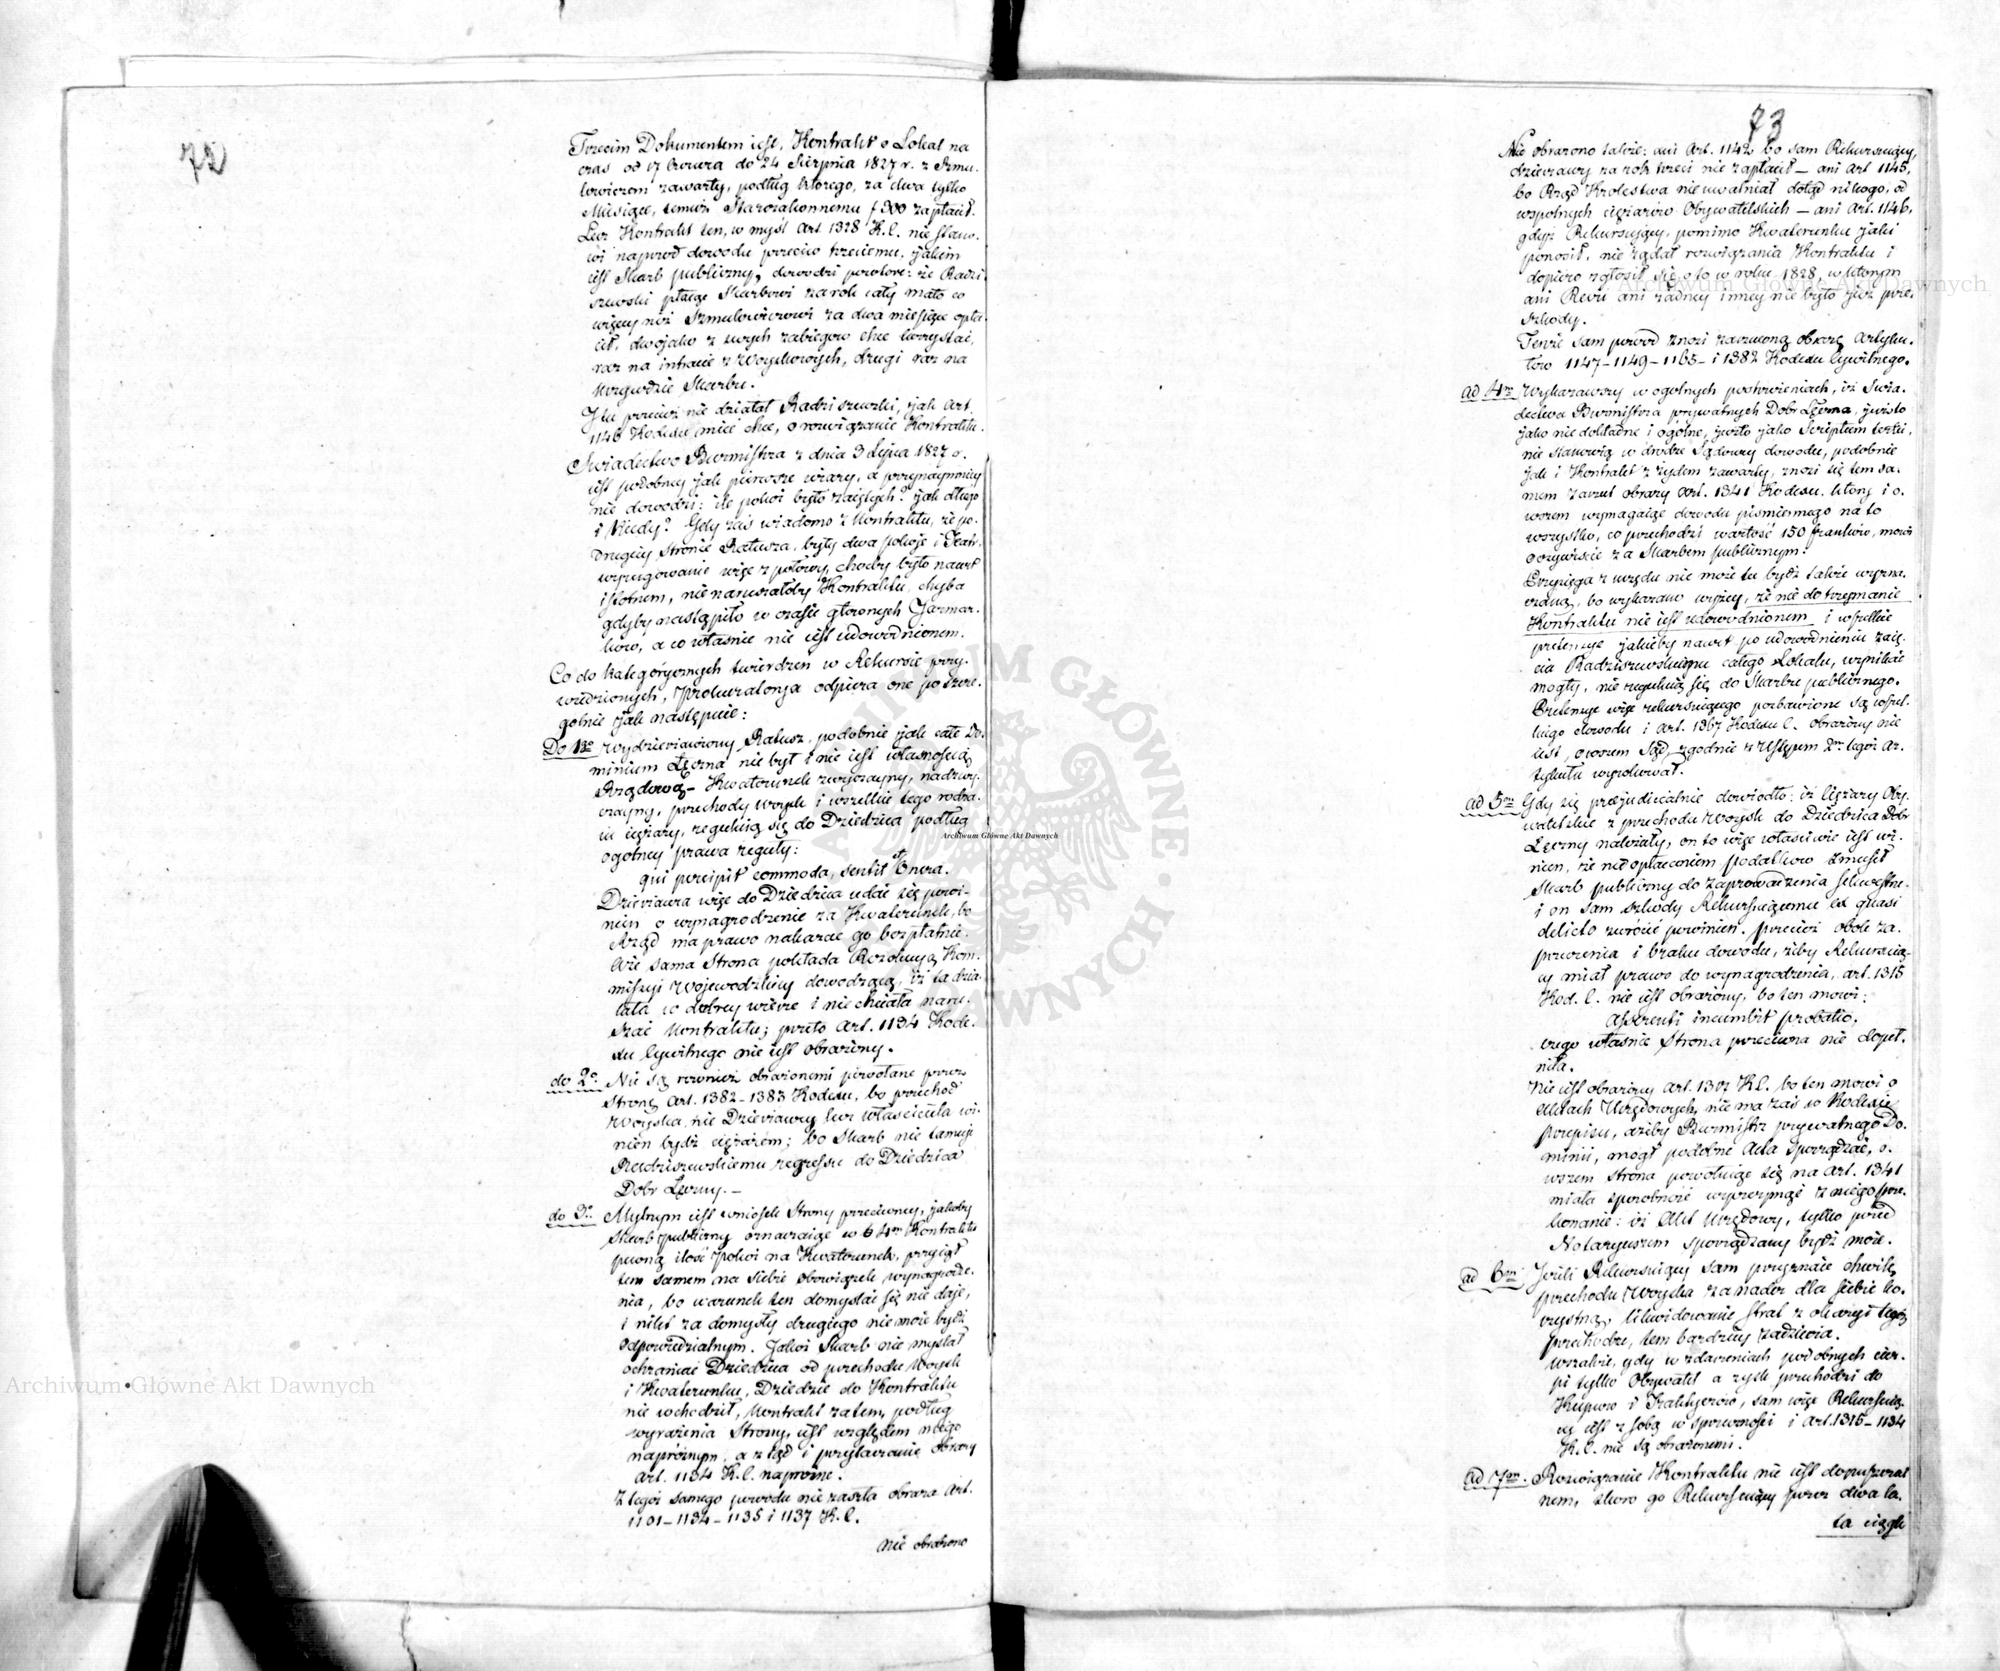 72
Trzecim Dokumentem iest, Kontrakt o Lokal na
czas od 17 Czerwca do 24 Sierpnia 1827 r. z Szmu-
lowiczem zawarty, podług którego, za dwa tylko
Miesiące, temuż Starozakonnemu f 300 zapłacił.
Lecz Kontrakt ten, w myśl Art. 1328 K.C. nie stano-
wi naprzód dowodu przeciw trzeciemu, jakim
iest Skarb publiczny, dowodzi powtore: że Radzi-
szewski płacąc Skarbowi za rok cały mało co
więcey niż Szmulowiczowi za dwa miesiące opła-
cił, dwojako z swych zabiegow chce korzystać,
raz na intracie z Woyskowych, drugi raz na
krzywdzie Skarbu.
I tu przecież nie działał Radziszewski, jak Art.
1146 Kodexu mieć chce, o rozwiązanie Kontraktu.
Swiadectwo Burmistrza z dnia 3 Lipca 1827 r.
iest podobney jak pierwsze wiary, a przynaymniey
nie dowodzi: ile pokoi było zaiętych? jak długo
i kiedy? Gdy zaś wiadomo z Kontraktu, że po
drugiey stronie Ratusza, były dwa pokoje i Teatr,
wyrugowanie więc z połowy, choćby było nawet
istotnem, nie naruszałoby Kontraktu, chyba
gdyby nastąpiło w czasie głownych Jarmar-
kow, a co własnie nie iest udowodnionem.
Co do kategorycznych twierdzeń w Rekursie przy-
wiedzionych, Prokuratorya odpiera one po szcze-
golnie jak następuie:
Do 1mo Wydzierżawiony Ratusz, podobnie jak całe Do-
minium Łęczna nie był i nie iest własnością
Rządową – Kwaterunek zwyczayny, nadzwy-
czayny, przechody woysk i wszelkie tego rodza-
iu ciężary, regulują się do Dziedzica podług
ogolney prawa reguły:
qui percipit commoda, sentit et Onera.
Dzierżawca więc do Dziedzica udać się powi-
nien o wynagrodzenie za Kwaterunek, bo
Rząd ma prawo nakazać go bezpłatnie.
Gdzie sama Strona pokłada Rezolucyą Kom-
missyi Wojewodzkiey dowodzącą, iż ta dzia-
łała w dobrey wierze i nie chciała naru-
szać Kontraktu; przeto Art. 1134 Kode-
xu Cywilnego nie iest obrażony.
do 2o. Nie są rownież obrażonemi powołane przez
stronę Art. 1382 – 1383 Kodexu, bo przechod
Woyska, nie Dzierżawcy lecz właściciela wi-
nien bydź ciężarem; bo Skarb nie tamuje
Radziszewskiemu regressu do Dziedzica
Dobr Łęczny. –
do 3o. Mylnym iest wniosek Strony przeciwney, jakoby
Skarb publiczny oznaczając w 6tym Kontraktu
pewną ilość Pokoi na Kwaterunek, przyjął
tem samem na siebie obowiązek wynagrodze-
nia, bo warunek ten domyślać się nie daje,
i nikt za domysły drugiego nie może bydź
odpowiedzialnym. Jakoż Skarb nie myślał
ochraniać Dziedzica od przechodu Woysk
i Kwaterunku, Dziedzic do Kontraktu
nie wchodził, Kontrakt zatem, podług
wyrażenia Strony, iest względem niego
naprożnym, a ztąd i przytaczanie obrazy
Art. 1134 K.C. naprożne.
Z tegoż samego powodu nie zaszła obraza Art.
1101 – 1134 – 1135 i 1137 K.C.
nie obrażono
73
Nie obrażono także: ani Art. 1142 bo sam Rekursuiący,
dzierżawy za rok trzeci nie zapłacił – ani Art 1145,
bo Rząd Krolestwa nie uwalniał dotąd nikogo, od
wspolnych ciężarow Obywatelskich – ani Art. 1146,
gdyż Rekursujący, pomimo Kwaterunku jaki
ponosił, nie żądał rozwiązania Kontraktu i
dopiero zgłosił się o to w roku 1828, w ktorym
ani Rewii ani żadney inney nie było już prze-
szkody.
Tenże sam powod znosi zarzuconą obrazę Artyku-
łow 1147 – 1149 – 1165 – i 1382 Kodexu Cywilnego.
ad 4m Wykazawszy w ogolnych postrzeżeniach, iż Swia-
dectwa Burmistrza prywatnych Dobr Łęczna, jużto
jako niedokładne i ogólne, jużto jako Scriptum testis,
nie stanowią w drodze Sądowey dowodu, podobnie
jak i Kontrakt z żydem zawarty, znosi się tem sa-
mem zarzut obrazy Art. 1341 Kodexu, ktory i o-
wszem wymagaiąc dowodu pismiennego na to
wszystko, co przechodzi wartość 150 frankow, mowi
oczywiście za Skarbem publicznym.
Przysięga z urzędu nie może tu bydź także wyzna-
czoną, bo wykazano wyżey, że nie dotrzymanie
Kontraktu nie iest udowodnionem i wszelkie
pretensye jakieby nawet po udowodnieniu zaię-
cia Radziszewskiemu całego Lokalu, wynikać
mogły, nie regulują się do Skarbu publicznego.
Pretensye więc rekursuiącego pozbawione są wszel-
kiego dowodu i Art. 1367 Kodexu C. obrażony nie
iest, owszem Sąd zgodnie z Ustępem 2m tegoż Ar-
tykułu wyrokował.
ad 5m Gdy się prejudicialnie dowiodło: iż Ciężary Oby-
watelskie z przechodu Woysk do Dziedzica Dobr
Łęczny należały, on to więc właściwie iest wi-
nien, że nieopłaceniem podatkow zmusił
Skarb publiczny do zaprowadzenia sekwestru
i on sam szkody Rekursuiącemu ex quasi
delicto zwrócić powinien. Przecież obok za-
przeczenia i braku dowodu, żeby Rekursuią-
cy miał prawo do wynagrodzenia, art. 1315
Kod. C. nie iest obrażony, bo ten mowi:
Asserenti incumbit probatio,
czego własnie Strona przeciwna nie dopeł-
niła.
Nie iest obrażony Art. 1317 K.C. bo ten mowi o
Aktach Urzędowych, nie ma zaś w Kodexie
przepisu, ażeby Burmistrz prywatnego Do-
minii, mogł podobne Acta sporządzać, o-
wszem strona powołuiąc się na Art. 1341
miała sposobność wyczerpnąć z niego prze-
konanie: iż Akt Urzędowy, tylko przed
Notaryuszem sporządzany bydź może.
ad 6m Jeżeli Rekursuiący sam przyznaie chwilę
przechodu Woyska za nader dla siebie ko-
rzystną, likwidowanie strat z okazyi tegoż
przechodu, tem bardziey zadziwia.
Wszakże, gdy w zdarzeniach podobnych cier-
pi tylko Obywatel a zysk przechodzi do
Kupcow i Traktyerow, sam więc Rekursuią-
cy iest z sobą w sprzeczności i Art. 1315 – 1134
K.C. nie są obrażonemi.
ad 7m. Rozwiązanie Kontraktu nie iest dopuszczal-
nem, skoro go Rekursuiący przez dwa la-
ta ciągle
Archiwum Główne Akt Dawnych
Archiwum Główne Akt Dawnych
Archiwum Główne Akt Dawnych
ARCHIWUM GŁÓWNE AKT DAWNYCH